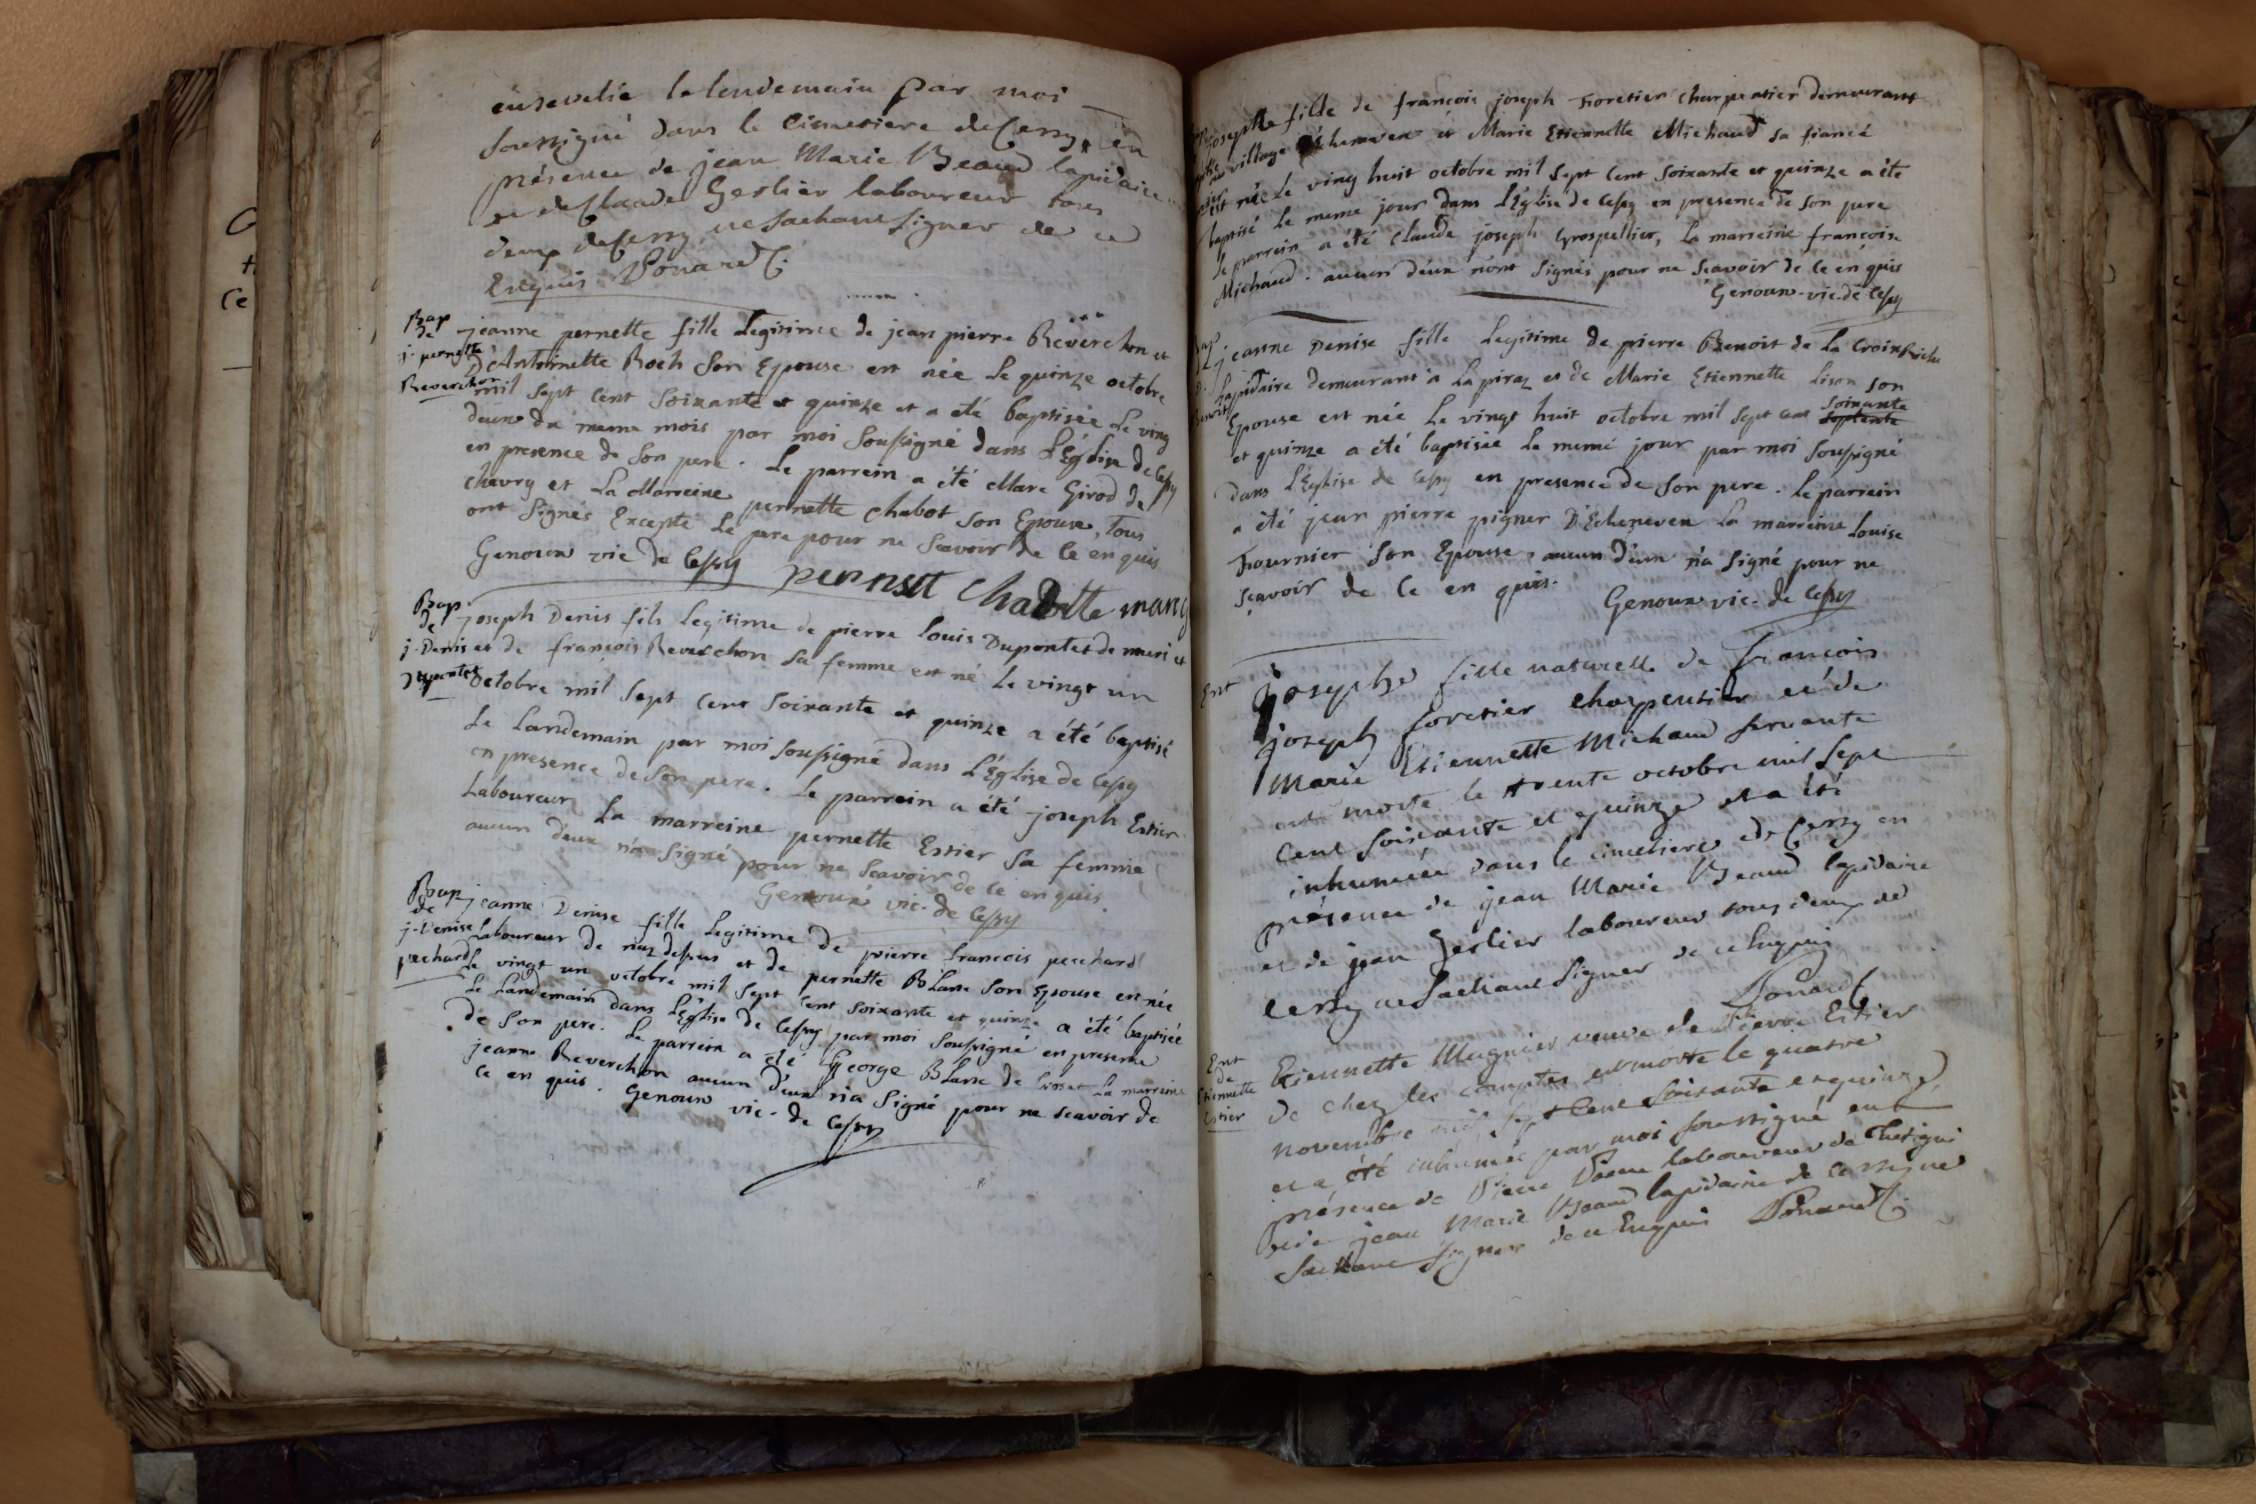 ensevelie le lendemain par moi
soussigné dans le cimetiere de Cessy, en
présence de jean Marie Beaud lapidaire
et de Claude Gerlier laboureur tous
deux de Cessy ne sachant signer de ce
Enquis Ponard C.
Bap
de
j. pernette
Reverchon
jeanne pernette fille Legitime de jean pierre Reverchon et
D'Antoinette Roch son Epouse est née le quinze octobre
mil sept cent soixante et quinze et a été baptisée le ving
deux du meme mois par moi soussigné dans l'Église de Cessy
en presence de son pere. Le parrein a été Marc Girod de
Chevry et La Marreine pernette Chabot son Epouse, tous
ont signés Excepté Le pere pour ne scavoir de ce en quis
Genoux vic de Cessy
Bap.
de
j. Denis
Dupontet
joseph Denis fils Legitime de pierre Louis Dupontet de muri et
et de françois Reverchon sa femme est né le vingt un
octobre mil sept cent soixante et quinze a été baptisé
Le Landemain par moi soussigné dans L'Église de Cessy
en presence de son pere. Le parrein a été joseph Estier
Laboureur La marreine pernette Estier sa femme
aucun deux n'a signé pour ne scavoir de ce en quis.
Genoux vic. de Cessy
Bap
de
j. Denise
pechard
jeanne Denise fille Legitime de pierre francois pechard
Laboureur de dessus et de pernette Blanc son Epouse est née
Le vingt un octobre mil sept cent soixante et quinze a été baptisée
Le Landemain dans L'Église de Cessy par moi soussigné en presence
de son pere. Le parrein a été George Blanc de La marreine
jeanne Reverchon aucun d'eux n'a signé pour ne scavoir de
ce en quis. Genoux vic. de Cessy
josephe fille de francois joseph Foretier charpentier demeurant
village d'Echenevex et Marie Etiennette Michaud sa fiancé
est née Le ving huit octobre mil sept cent soixante et quinze a été
baptisé Le meme jour dans L'Église de Cessy en presence de son pere
Le parrein a été Claude joseph Grospellier, La marreine françoise
Michaud. aucun deux n'ont signés pour ne scavoir de ce en quis
Genoux. vic. de Cessy
jeanne Denise fille Legitime de pierre Benoit de La
Lapidaire demeurant a La piraz et de Marie Etiennette son
Epouse est née Le vingt huit octobre mil sept cent soixante
septente
et quinze a été baptisée Le meme jour par moi soussigné
dans L'Église de Cessy en presence de son pere. Le parrein
a été jean pierre pigner D'Echenevex La marreine Louise
Fournier son Epouse, aucun d'eux n'a signé pour ne
sçavoir de ce en quis.
Genoux vic. de Cessy
Ent
josephe fille naturelle de francois
joseph foretier charpentier et de
Marie Etiennette Michaud servante
est morte le trente octobre mil sept
cent soixante et quinze et a été
inhumée dans le cimetiere de Cessy en
présence de jean Marie Beaud lapidaire
et de jean Gerlier laboureur tous deux de
Cessy ne sachant signer de ce Enquis
Ponard C
Ent
de
Etiennette
Estier
Etiennette Mugnier veuve de Pierre Estier
de chez les comptes est morte le quatre
novembre mil sept cent soixante et quinze,
et a été inhumée par moi soussigné en
présence de Pierre laboureur de
et de jean Marie Beaud lapidaire de Cessy ne
sachant signer de ce Enquis Ponard C.